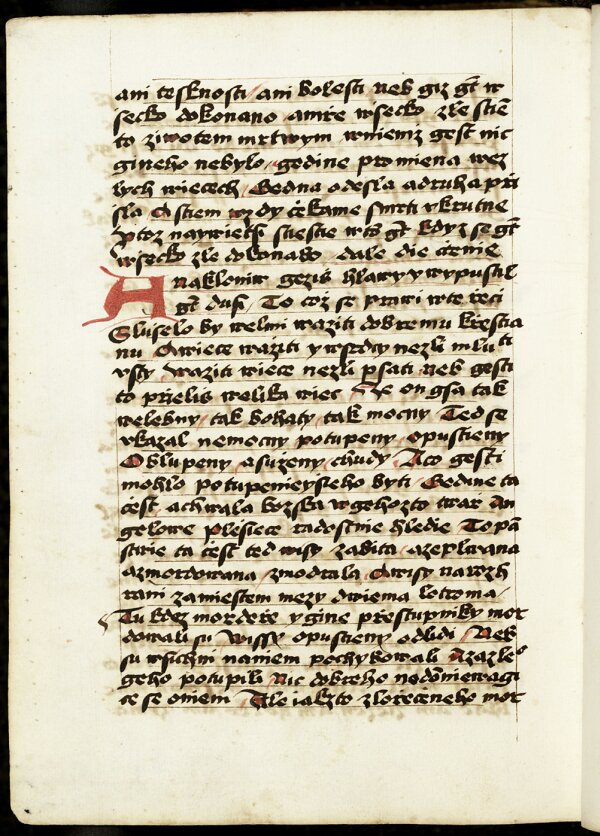 ani tesknosti / ani bolesti neb giz gt w
secko dokonano amře wsecko zle stie
to ziwotem mrtwym wniemz gest nic
gineho nebylo / godine promiena wez
lych wiecech / Gedna odesla a druha při
sla O stiem wzdy čekame smrti vkrutne
Ptoz naywietsi stiestie
wsecko zle dokonano dale die čtenie
A nakloniw geziš hlawy y wypustil
gt duss / To coz se prawi wte řeci
Sluselo by welmi waziti dobremu křestia
nu Owiece wažiti y wsrdcy nezli mluti
vsty Waziti wiece nezli psati neb gesti
to přelis welika wiec / On gsa tak
welebny / tak bohaty / tak mocny Ted se
vkazal nemocny potupeny / opustieny
Oblupeny / a suženy / chudy / A co gesti
mohlo potupenieyšeho byti Gedine ta
čest / a chwala bozska w gehozto twař An
gelowe plesiece radostnie hledie To pan
stwie ta čest ted wisy / zabita / a zeplwana
a zmordowana / zmodrala O wisy na wrzh
rani zamiestem mezy dwiema lotroma /
Tu kdez mordeře y gine přestupniky mor
dowali su Wissy opustieny od lidi / Neb
su wsickni naniem pochybowali A zazle
geho potupili Nic dobreho nedomniewagi
ce se oniem / Ale iakzto zlořečeneho mor